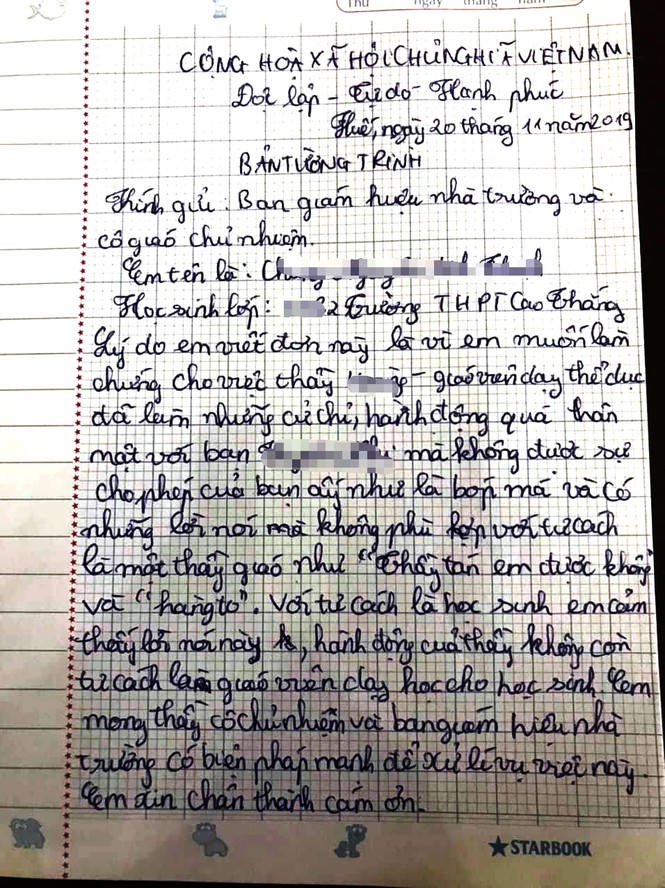 Thứ ngày tháng năm
CỘNG HOÀ XÃ HỘI CHỦ NGHĨA VIỆT NAM.
Độc lập - Tự do - Hạnh phúc
Huế, ngày 20 tháng 11 năm 2019
BẢN TƯỜNG TRÌNH
Kính gửi: Ban giám hiệu nhà trường và
cô giáo chủ nhiệm.
Em tên là:
Học sinh lớp: 2 Trường THPT Cao Thắng
Lý do em viết đơn này là vì em muốn làm
chứng cho việc thầy - giáo viên dạy thể dục
đã làm những cử chỉ, hành động quá thân
mật với bạn mà không được sự
cho phép của bạn ấy như là bóp má và có
những lời nói mà không phù hợp với tư cách
là một thầy giáo như "Thầy tán em được không"
và "hàng to". Với tư cách là học sinh em cảm
thấy lời nói này, hành động của thầy không còn
tư cách làm giáo viên dạy học cho học sinh. Em
mong thầy cô chủ nhiệm và ban giám hiệu nhà
trường có biện pháp mạnh để xử lí vụ việc này.
Em xin chân thành cảm ơn.
★STARBOOK